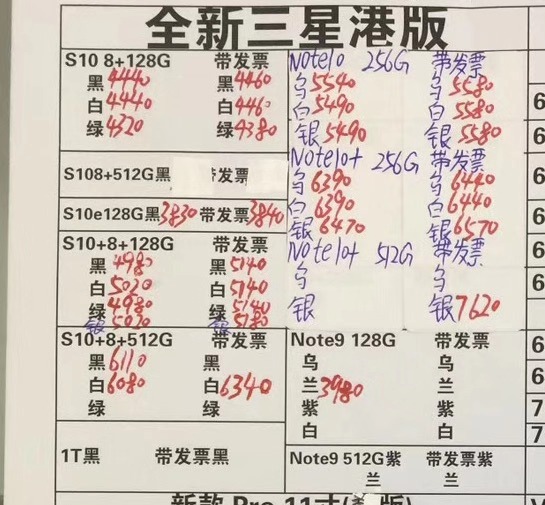 全新三星港版
S10 8+128G 带发票
黑4440 黑4460
白4440 白446
绿4320 绿4380
S108+512G黑 带发票
S10e128G黑3830 带发票3840
S10+8+128G 带发票
黑4980 黑5140
白5020 白5140
绿4980 绿5140
银5020 银5180
S10+8+512G 带发票
黑6110 黑
白6080 白6340
绿 绿
1T黑 带发票黑
Note10 256G 带发票
乌5540 乌5580
白5490 白5580
银5490 银5580
Note10+ 256G 带发票
乌6390 乌6440
白6390 白6440
银6470 银6570
Note10+ 512G 带发票
乌 乌
银 银7620
Note9 128G 带发票
乌 乌
兰3980 兰
紫 紫
白 白
Note9 512G紫 带发票紫
兰 兰
6
6
6
6
6
6
6
7
7
新款 Pro 11寸( 版)